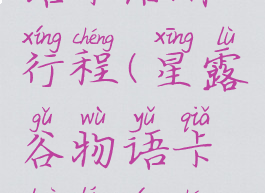 xíng chéng xīng lù
行程(星露
gǔ wù yǔ qiǎ
谷物语卡